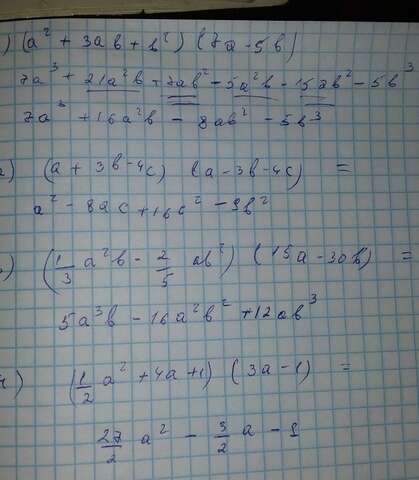 ) (a² + 3ab + b²) (7a - 5b)
7a³ + 21a²b + 7ab² - 5a²b - 15ab² - 5b³
7a³ + 16a²b - 8ab² - 5b³
a) (a + 3b - 4c) (a - 3b - 4c) =
a² - 8ac + 16c² - 9b²
) (1/3 a²b - 2/5 ab²) (15a - 30b) =
5a³b - 16a²b² + 12ab³
) (1/2 a² + 4a + 1) (3a - 1) =
27/2 a² - 5/2 a - 1